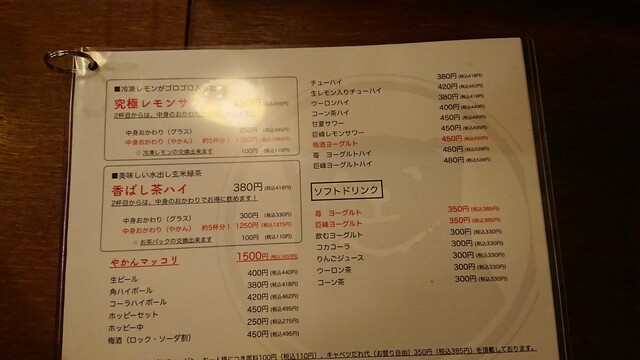 ■冷凍レモンがゴロゴロ入った
究極レモンサ
2杯目からは、中身のおかわり
中身おかわり（グラス） 350円
中身おかわり（やかん） 約5杯分！
※冷凍レモンの交換出来ます 100円（税込110円）
■美味しい水出し玄米緑茶
香ばし茶ハイ 380円（税込418円）
2杯目からは、中身のおかわりでお得に飲めます！
中身おかわり（グラス） 300円（税込330円）
中身おかわり（やかん） 約5杯分！ 1250円（税込1375円）
※お茶パックの交換出来ます 100円（税込110円）
やかんマッコリ 1500円（税込1650円）
生ビール 400円（税込440円）
角ハイボール 380円（税込418円）
コーラハイボール 420円（税込462円）
ホッピーセット 450円（税込495円）
ホッピー中 250円（税込275円）
梅酒（ロック・ソーダ割） 450円（税込495円）
チューハイ 380円（税込418円）
生レモン入りチューハイ 420円（税込462円）
ウーロンハイ 380円（税込418円）
コーン茶ハイ 400円（税込440円）
甘夏サワー 450円（税込495円）
巨峰レモンサワー 450円（税込495円）
梅酒ヨーグルト 450円（税込495円）
苺 ヨーグルトハイ 480円（税込528円）
巨峰ヨーグルトハイ 480円（税込528円）
ソフトドリンク
苺 ヨーグルト 350円（税込385円）
巨峰ヨーグルト 350円（税込385円）
飲むヨーグルト 300円（税込330円）
コカコーラ 300円（税込330円）
りんごジュース 300円（税込330円）
ウーロン茶 300円（税込330円）
コーン茶 300円（税込330円）
につき席料100円（税込110円）、キャベツだれ代（お替り自由）350円（税込385円）を頂戴しております。